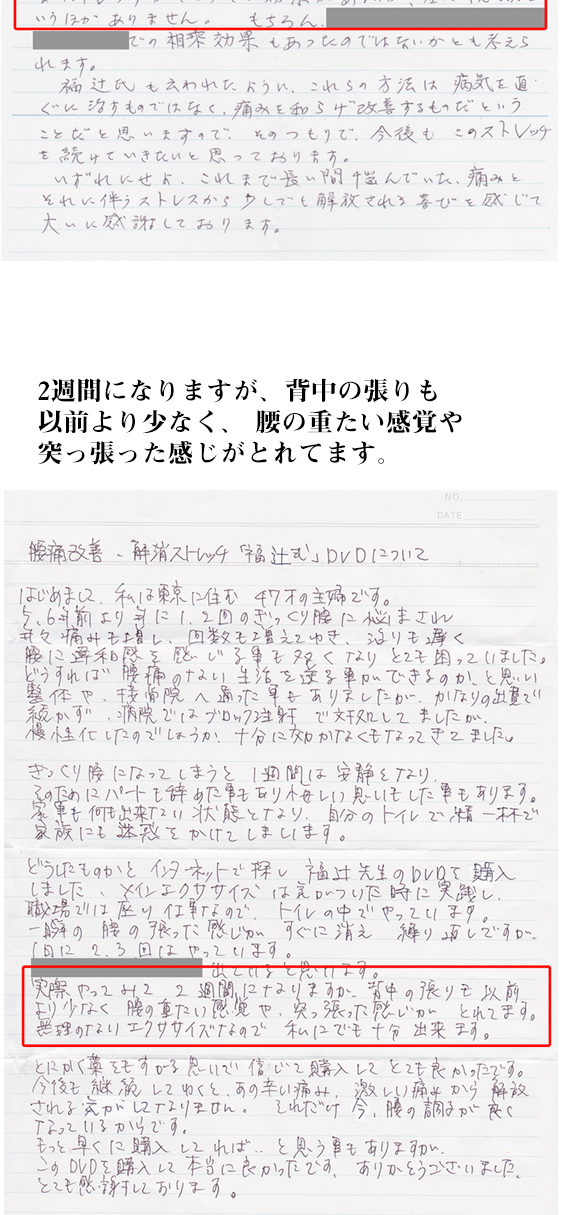 いうほかありません。 もちろん、
での相乗効果もあったのではないかとも考えら
れます。
福辻氏も云われたように、これらの方法は病気を直
ぐに治すものではなく、痛みを和らげ改善するものだという
ことだと思いますので、そのつもりで、今後もこのストレッチ
を続けていきたいと思っております。
いずれにせよ、これまで長い間悩んでいた、痛みと
それに伴うストレスから少しでも解放される喜びを感じて
大いに感謝しております。
2週間になりますが、背中の張りも
以前より少なく、 腰の重たい感覚や
突っ張った感じがとれてます。
NO.
DATE
腰痛改善・解消ストレッチ「福辻式」DVDについて
はじめまして、私は東京に住む 47才の主婦です。
5、6年前より年に1、2回のぎっくり腰に悩まされ
年々痛みも増し、回数も増えてゆき、治りも遅く
腰に違和感を感じる事も多くなりとても困っていました。
どうすれば腰痛のない生活を送る事ができるのか、と思い
整体や、接骨院へ通った事もありましたが、かなりの出費で
続かず、病院ではブロック注射で対処してましたが、
慢性化したのでしょうか、十分に効かなくもなってきてました。
ぎっくり腰になってしまうと 1週間は安静となり、
そのためにパートも辞めた事もあり悔しい思いもした事もあります。
家事も何も出来ない状態となり、自分のトイレで精一杯で
家族にも迷惑をかけてしまいます。
どうしたものかとインターネットで探し 福辻先生のDVDを購入
しました。メインエクササイズは気がついた時に実践し、
職場では座り仕事なので、トイレの中でやっています。
一瞬の腰の張った感じがすぐに消え 繰り返しですが、
1日に2、3回はやっています。
出ていると思います。
実際やってみて 2週間になりますが、背中の張りも以前
より少なく 腰の重たい感覚や、突っ張った感じがとれてます。
無理のないエクササイズなので 私にでも十分出来ます。
とにかく藁をもすがる思いで信じて購入してとても良かったです。
今後も継続してゆくと、あの辛い痛み、激しい痛みから解放
される気がしてなりません。それだけ今、腰の調子が良く
なっているからです。
もっと早くに購入してれば…と思う事もありますが、
このDVDを購入して本当に良かったです。ありがとうございました。
とても感謝しております。